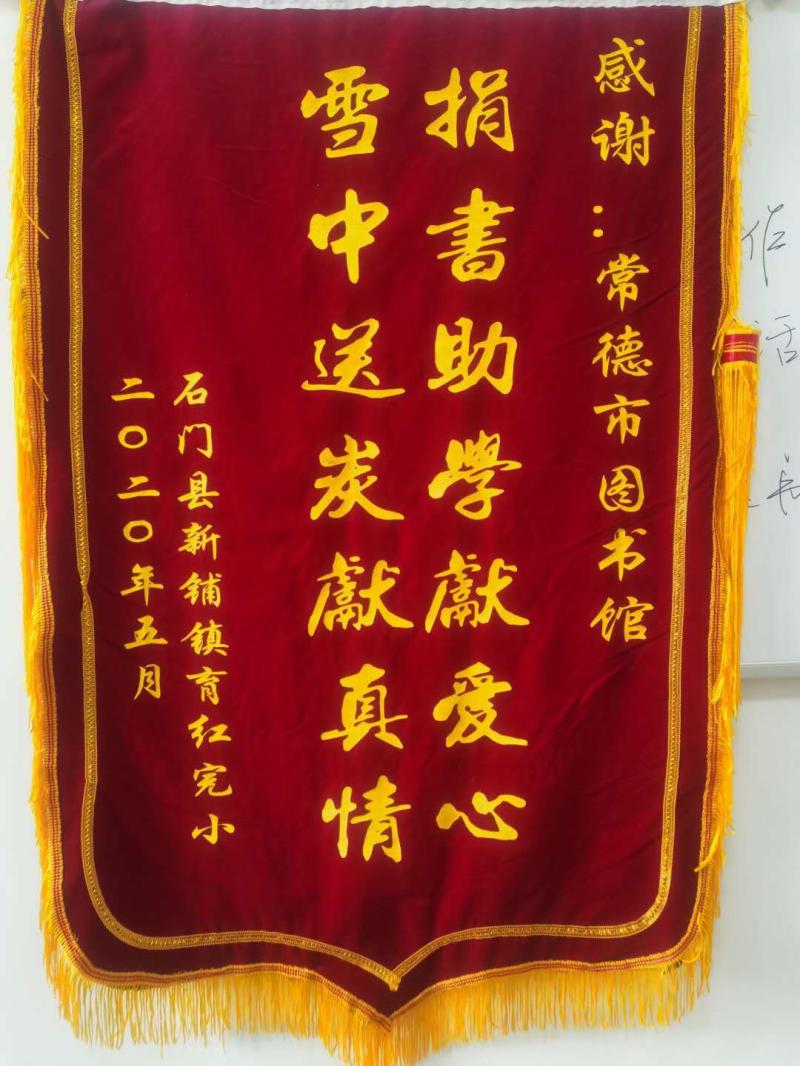 感谢：常德市图书馆
捐書助學獻爱心
雪中送炭獻真情
石门县新铺镇育红完小
二〇二〇年五月
作
活